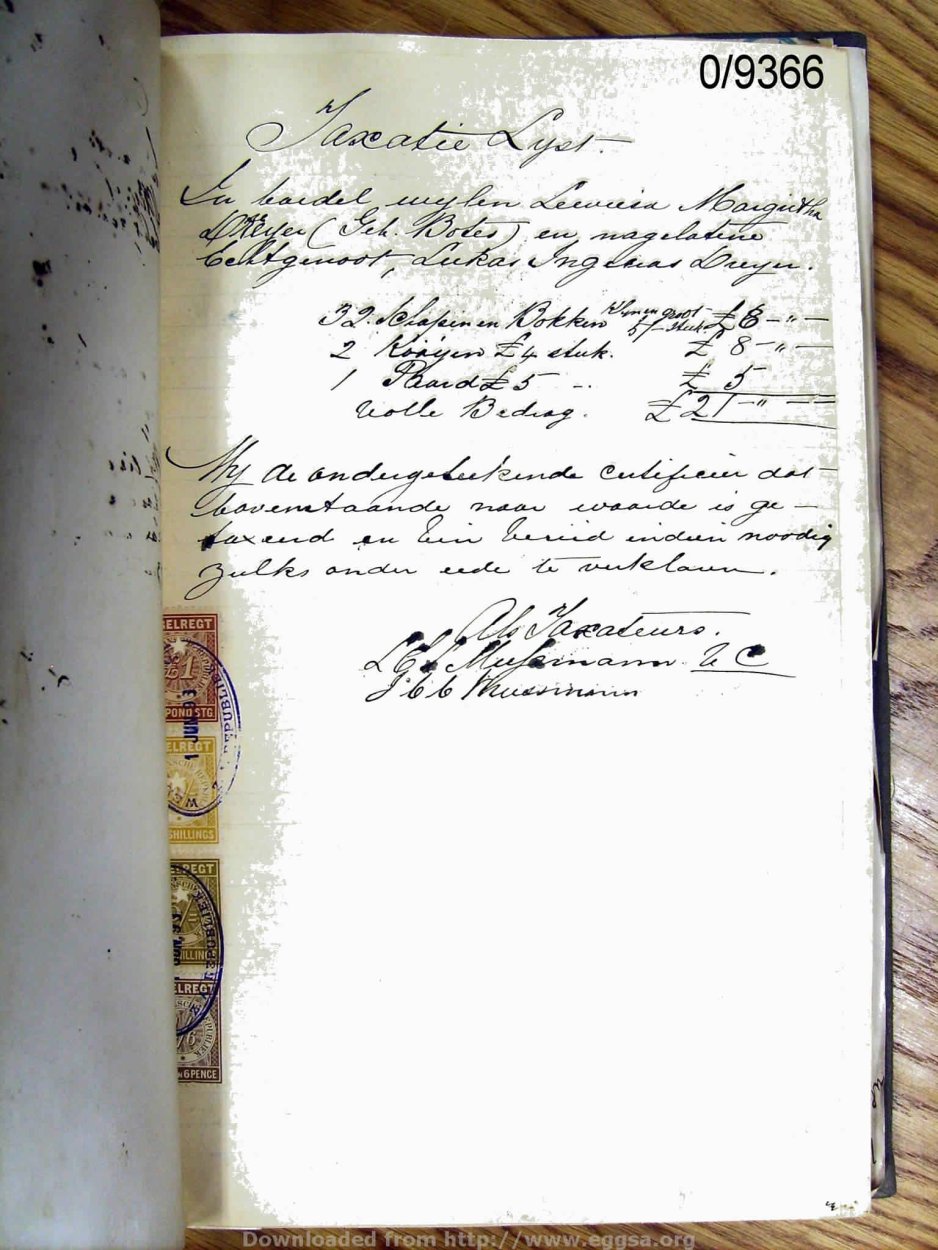 0/9366
Taxatie Lyst.
In boedel wylen Lewiesa Margritha
Dreyer (Geb. Botes) en nagelatene
Echtgenoot, Lukas Ingenas Dreyer.
32. Schapen en Bokken Klyn en groot 5/- stuk £ 8 - " -
2 Kooÿen £4 stuk. £ 8 - " -
1 Paard £5 - .. £ 5
Volle Bedrag. £21 - " -
Wy de ondergeteekende certificeer dat
bovenstaande naar waarde is ge -
taxeerd en bereid indien noodig
zulks onder eede te verklaren.
Als Taxateurs.
Mussmann V C
Mussmann
ELREGT
£1
POND STG
1 JUN
ELREGT
SHILLINGS
ELREGT
ILLING
ELREGT
/6
N 6 PENCE
Downloaded from http://www.eggsa.org